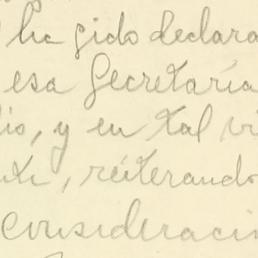 ha sido declara
esa Secretaría
io, y en tal vi
te, reiterando
consideraci